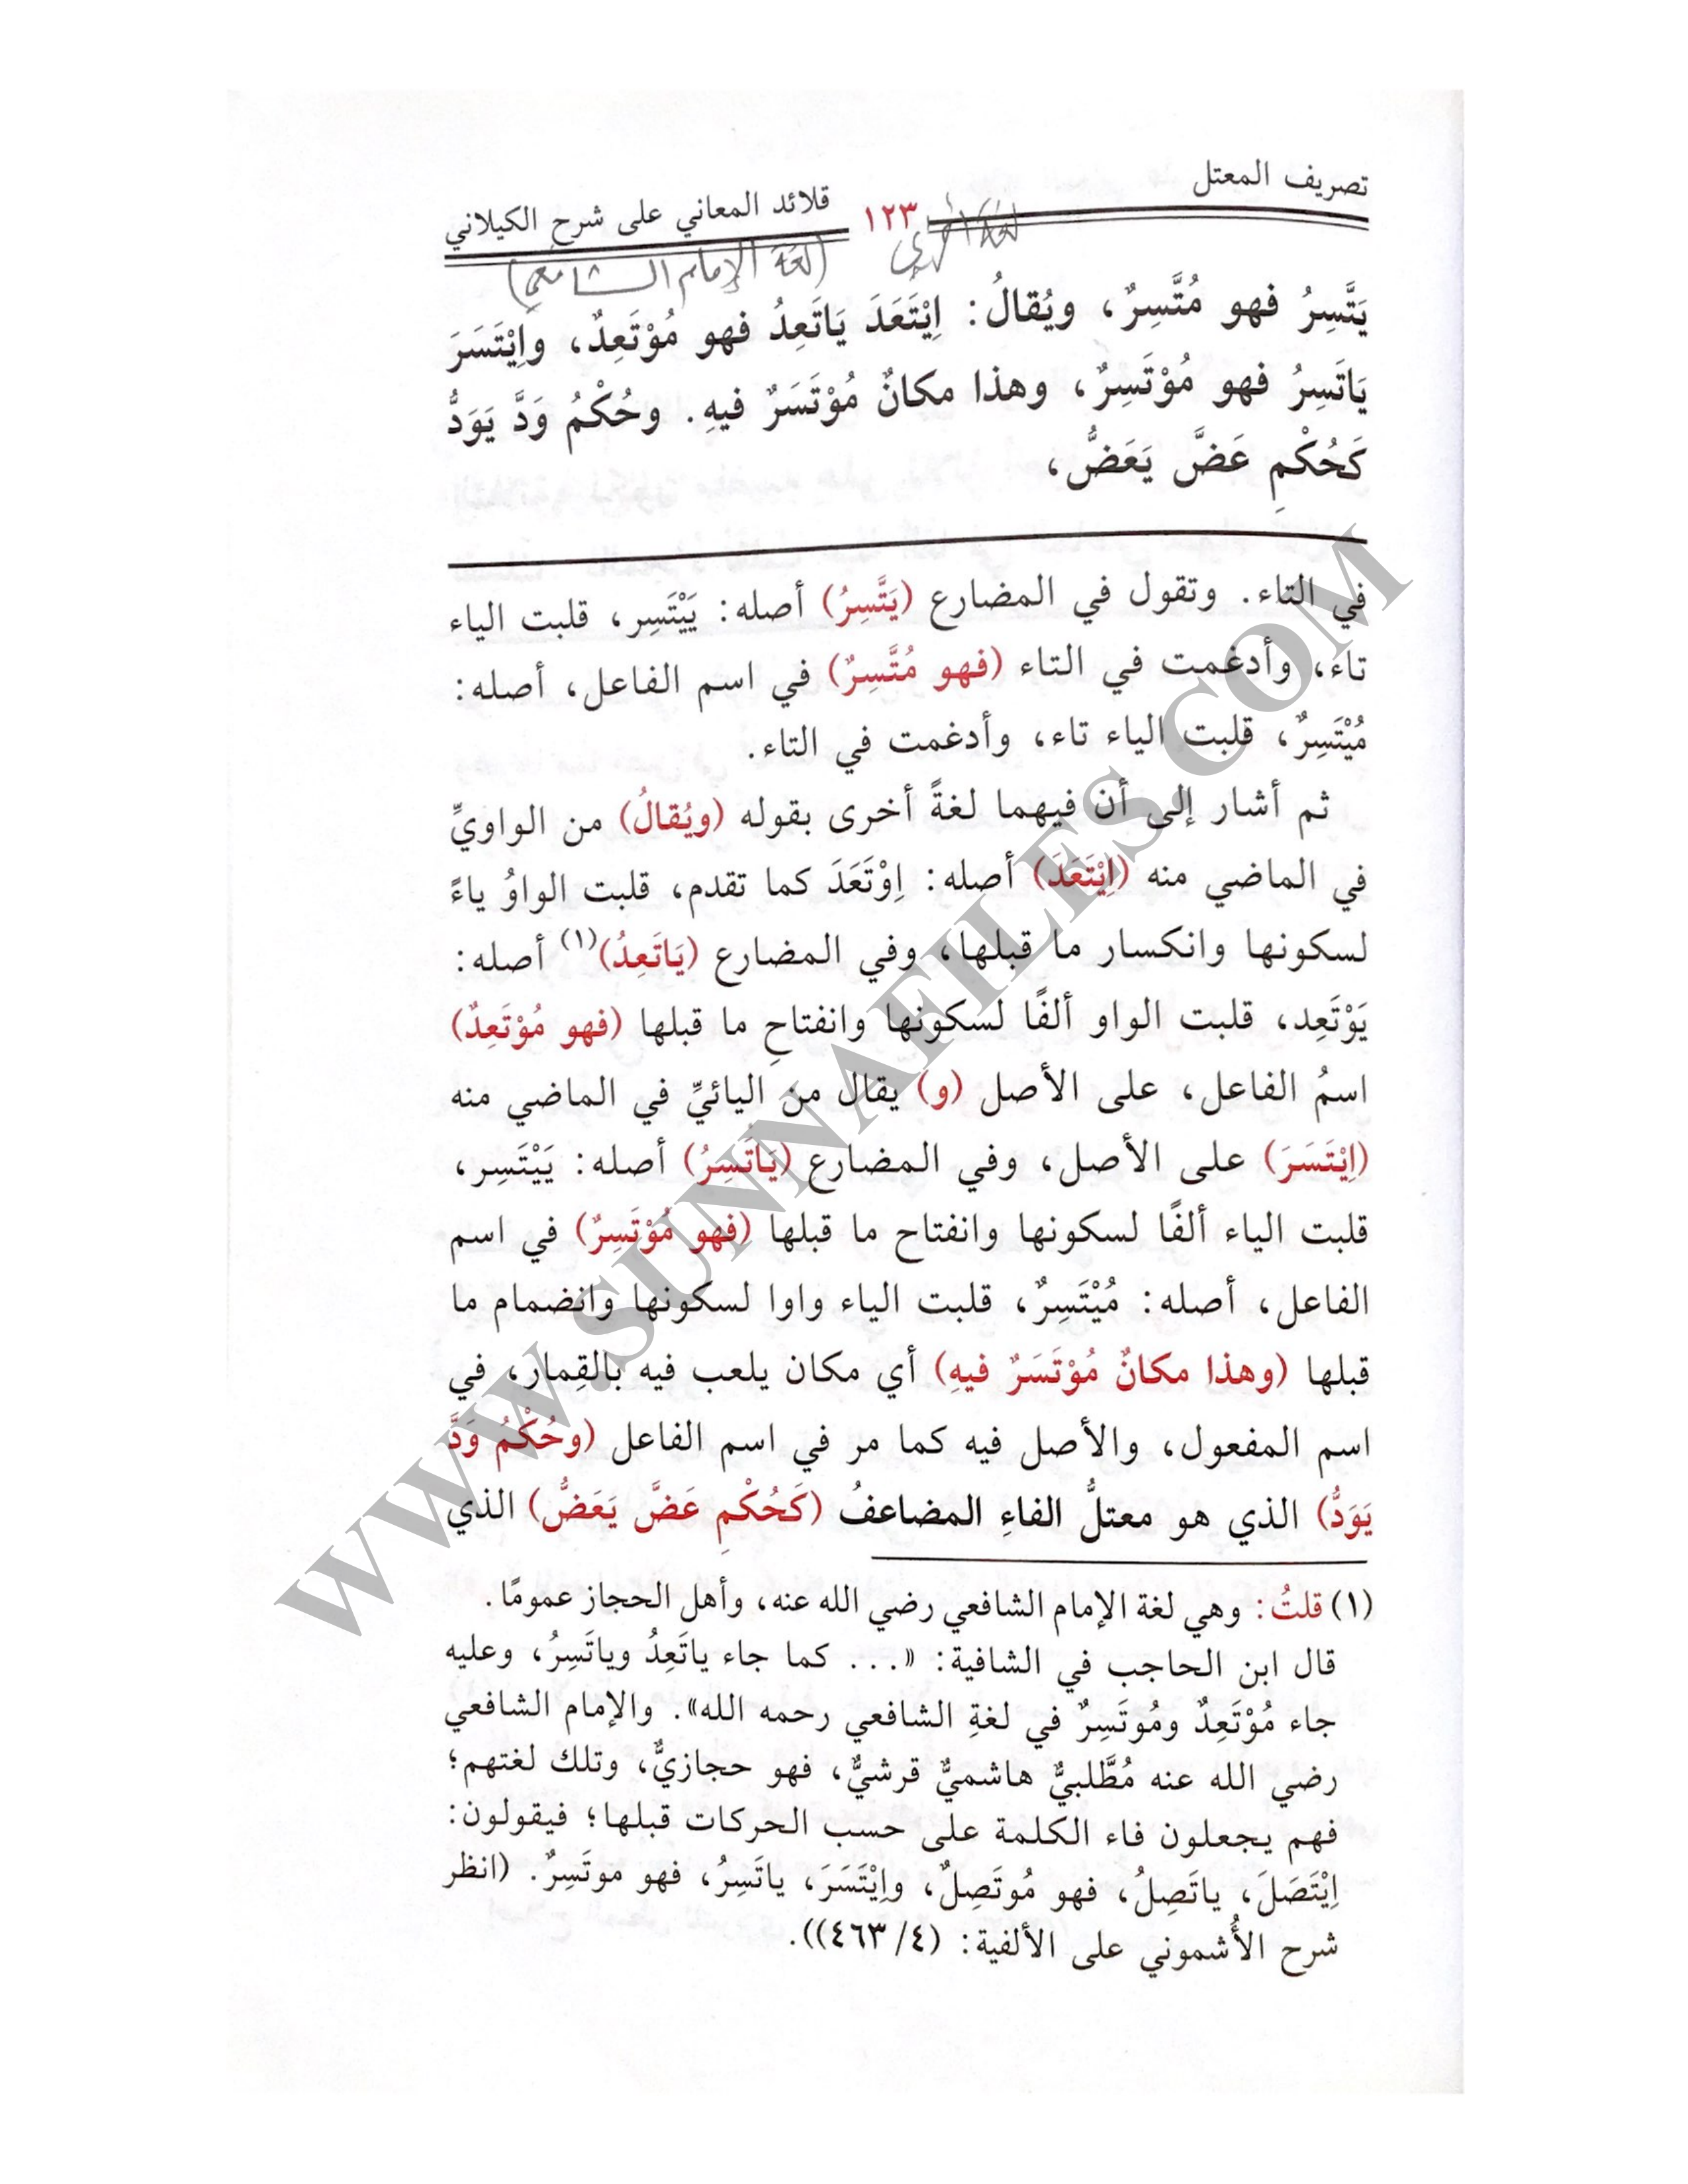 تصريف المعتل
١٢٣
قلائد المعاني على شرح الكيلاني
لغة أخرى
(لغة الإمام الشافعي)
يَتَّسِرُ فهو مُتَّسِرٌ، ويُقالُ: اِيْتَعَدَ يَاتَعِدُ فهو مُوْتَعِدٌ، واِيْتَسَرَ
يَاتَسِرُ فهو مُوْتَسِرٌ، وهذا مكانٌ مُوْتَسَرٌ فيهِ. وحُكْمُ وَدَّ يَوَدُّ
كَحُكْمِ عَضَّ يَعَضُّ،
في التاء. وتقول في المضارع (يَتَّسِرُ) أصله: يَيْتَسِر، قلبت الياء
تاء، وأدغمت في التاء (فهو مُتَّسِرٌ) في اسم الفاعل، أصله:
مُيْتَسِرٌ، قلبت الياء تاء، وأدغمت في التاء.
ثم أشار إلى أن فيهما لغةً أخرى بقوله (ويُقالُ) من الواويِّ
في الماضي منه (اِيْتَعَدَ) أصله: اِوْتَعَدَ كما تقدم، قلبت الواوُ ياءً
لسكونها وانكسار ما قبلها، وفي المضارع (يَاتَعِدُ)(١) أصله:
يَوْتَعِد، قلبت الواو ألفًا لسكونها وانفتاحِ ما قبلها (فهو مُوْتَعِدٌ)
اسمُ الفاعل، على الأصل (و) يقال من اليائيِّ في الماضي منه
(اِيْتَسَرَ) على الأصل، وفي المضارع (يَاتَسِرُ) أصله: يَيْتَسِر،
قلبت الياء ألفًا لسكونها وانفتاح ما قبلها (فهو مُوْتَسِرٌ) في اسم
الفاعل، أصله: مُيْتَسِرٌ، قلبت الياء واوا لسكونها وانضمام ما
قبلها (وهذا مكانٌ مُوْتَسَرٌ فيهِ) أي مكان يلعب فيه بالقِمار، في
اسم المفعول، والأصل فيه كما مر في اسم الفاعل (وحُكْمُ وَدَّ
يَوَدُّ) الذي هو معتلُّ الفاءِ المضاعفُ (كَحُكْمِ عَضَّ يَعَضُّ) الذي
(١) قلتُ: وهي لغة الإمام الشافعي رضي الله عنه، وأهل الحجاز عمومًا.
قال ابن الحاجب في الشافية: «... كما جاء ياتَعِدُ وياتَسِرُ، وعليه
جاء مُوْتَعِدٌ ومُوتَسِرٌ في لغةِ الشافعي رحمه الله». والإمام الشافعي
رضي الله عنه مُطَّلبيٌّ هاشميٌّ قرشيٌّ، فهو حجازيٌّ، وتلك لغتهم؛
فهم يجعلون فاء الكلمة على حسب الحركات قبلها؛ فيقولون:
اِيْتَصَلَ، ياتَصِلُ، فهو مُوتَصِلٌ، واِيْتَسَرَ، ياتَسِرُ، فهو موتَسِرٌ. (انظر
شرح الأُشموني على الألفية: (٤/ ٤٦٣)).
WWW.SUNNAFILES.COM